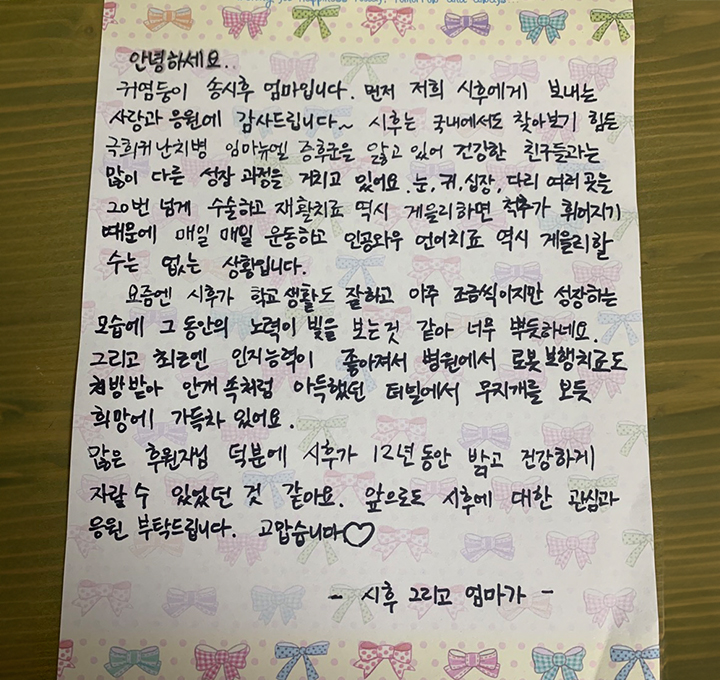 you happiness today, tomorrow and always...
안녕하세요..
귀염둥이 송시후 엄마입니다. 먼저 저희 시후에게 보내는
사랑과 응원에 감사드립니다~ 시후는 국내에서도 찾아보기 힘든
극희귀난치병 임마뉴엘 증후군을 앓고 있어 건강한 친구들과는
많이 다른 성장 과정을 거치고 있어요. 눈, 귀, 심장, 다리 여러 곳을
20번 넘게 수술하고 재활치료 역시 게을리하면 척추가 휘어지기
때문에 매일 매일 운동하고 인공와우 언어치료 역시 게을리할
수는 없는 상황입니다.
요즘엔 시후가 학교생활도 잘하고 아주 조금씩이지만 성장하는
모습에 그동안의 노력이 빛을 보는것 같아 너무 뿌듯하네요.
그리고 최근엔 인지능력이 좋아져서 병원에서 로봇보행치료도
처방받아 안개 속처럼 아득했던 터널에서 무지개를 보듯
희망에 가득차 있어요.
많은 후원자님 덕분에 시후가 12년동안 밝고 건강하게
자랄 수 있었던 것 같아요. 앞으로도 시후에 대한 관심과
응원 부탁드립니다. 고맙습니다♡
- 시후 그리고 엄마가 -